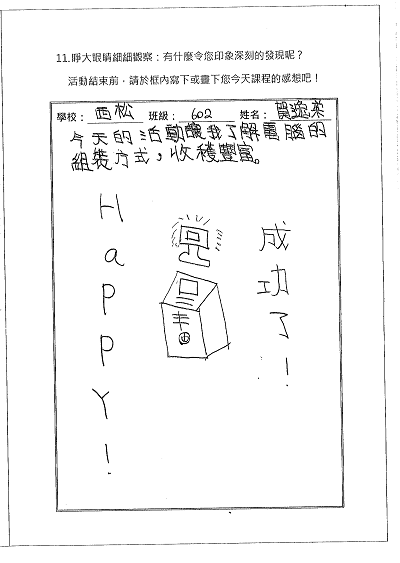 11.睜大眼睛細細觀察：有什麼令您印象深刻的發現呢？
活動結束前，請於框內寫下或畫下您今天課程的感想吧！
學校：西松 班級：602 姓名：賀
今天的活動讓我了解電腦的
組裝方式，收穫豐富。
HaPPY！
成功了！